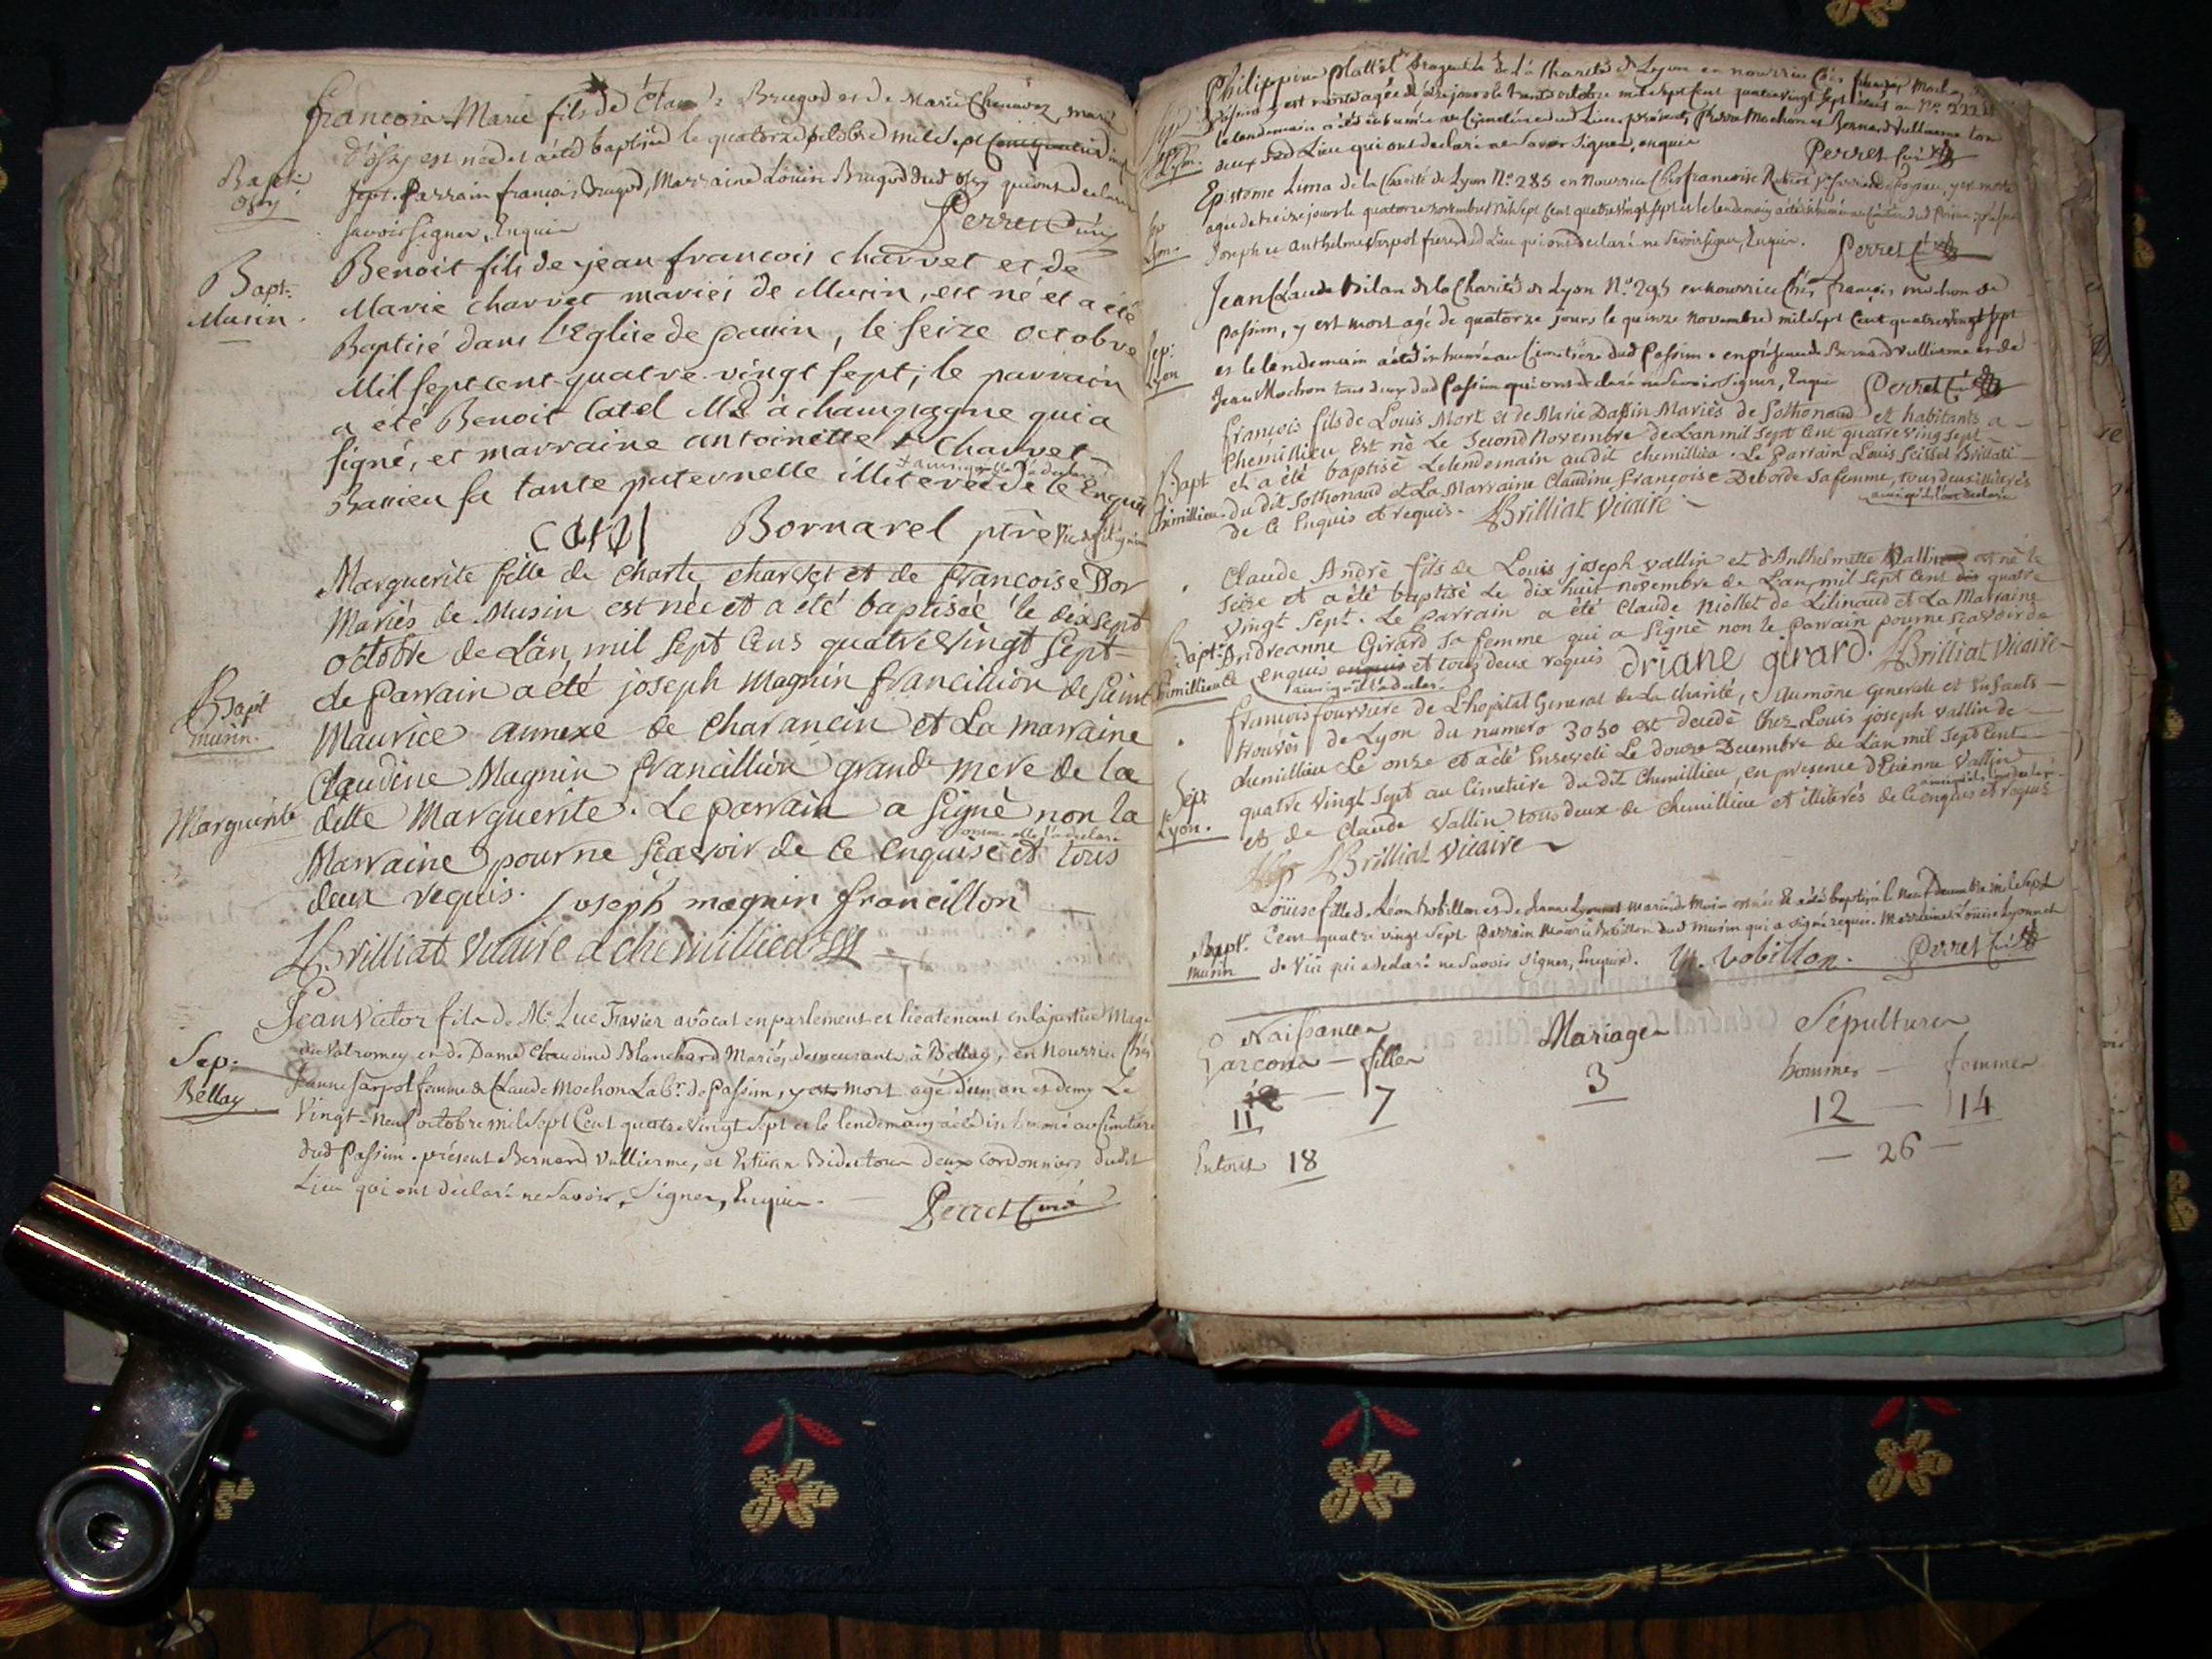 françois Marie fils de Claude Brugod et de Marie Chenavez mariés
d'ossy est né et a été baptisé le quatorze octobre mil sept
Bapt:
ossy
sept. Parrain françois Brugod, Marraine Louise Brugod dud ossy qui ont déclaré
savoir signer, Enquis
Perret Curé
Bapt:
Musin.
Benoit fils de jean françois charvet et de
Marie charvet mariés de Musin, est né et a été
Baptisé dans l'Eglise de , le seize octobre
Mil sept cent quatre-vingt sept; le parrain
a été Benoit Catel Md à champagne qui a
signé, et marraine antoinette + Charvet
sa tante paternelle illiterée de ce Enquise
catel Bornarel ptre
Marguerite fille de Charle charvet et de françoise Dor
Mariés de Musin est née et a été baptisée le dix sept
octobre de L'an mil sept Cens quatre vingt sept
Bapt
musin.
Le parrain a été joseph Magnin francillion de saint
Maurice annexe de charancin et La marraine
Claudine Magnin francillion grande mere de la
Marguerite
ditte Marguerite. Le parrain a signé non la
comme elle l'a declaré
Marraine pour ne scavoir de ce enquise et tous
deux requis. joseph magnin francillon
Brilliat Vicaire a chemillieu
Jean victor fils de Mr. Luc Favier avocat en parlement et lieutenant en la justice Mage
Sep:
du valromey et de Dame Claudine Blanchard Mariés, demeurants à Bellay, en Nourrice chés
Bellay
Jeanne sarpol femme de Claude Mochon Labr. de Passim, y est mort agé d'un an et demy Le
Vingt-Neuf octobre mil sept Cent quatre vingt sept et le lendemain a été inhumé au Cimetiere
dud Passim. présent Bernard Vullierme, et Etienne Bideston deux cordonniers dudit
Lieu qui ont déclaré ne Savoir, Signer, Enquis.
Perret Curé
Philippine de la Charité de Lyon en nourrice chés Mochon
Passim y est morte agée de jours le trente octobre mil sept Cent quatre vingt sept No. 222
Lyon.
le lendemain a été inhumée au Cimetiere dud Lieu, présents, Mochon et Bernard Vullierme tous
deux dud Lieu qui ont declaré ne Savoir signer, enquis Perret Curé
Epistome Lima de la Charité de Lyon No. 285 en Nourrice chés françoise
Lyon.
agée de treize jours le quatorze novembre mil sept Cent quatre vingt sept et le lendemain a été inhumée au
Joseph et anthelme sarpol freres dud Lieu qui ont declaré ne Savoir signer, Enquis. Perret Curé
Jean Claude Bilan de la Charité de Lyon No. 295 en nourrice chés françois mochon de
passim, y est mort agé de quatorze jours le quinze novembre mil sept Cent quatre vingt sept
Sep:
Lyon
et le lendemain a été inhumé au Cimetiere dud Passim. en présence de Bernard vullierme et de
Jean Mochon tous deux dud Passim qui ont declaré ne Savoir signer, Enquis Perret Curé
françois fils de Louis Mort et de Marie Dassin Mariés de Sothonaud et habitants a
Chemillieu Est né Le Second Novembre de L'an mil Sept Cent quatre ving Sept
Bapt
et a été baptisé Le lendemain audit chemillieu. Le Parrain Louis
Chimillieu.
du dit Sothonaud et La Marraine Claudine françoise Deborde Sa femme, tous deux illiterés
de ce Enquis et requis. Brilliat Vicaire
Claude André fils de Louis joseph vallin et d'Anthelmette est né le
seize et a été baptisé Le dix huit novembre de L'an mil sept Cens quatre
Vingt Sept. Le Parrain a été Claude Niollet de Lilinaud et La Marraine
Bapt:
Chimillieu
Andreanne Girard Sa femme qui a Signé non le Parrain pour ne scavoir de
ce enquis et tous deux requis driane girard. Brilliat Vicaire
françois fourviere de L'hopital General de La Charité, Aumône Generale et Enfants
trouvés de Lyon du numero 3050 est decedé Chez Louis joseph vallin de
Sept
Lyon.
chemillieu Le onze et a été Enseveli Le douze Decembre de L'an mil Sept Cent
quatre Vingt Sept au Cimetiere du dit Chemillieu, en presence d'Etienne Vallin
et de Claude vallin tous deux de chemillieu et illiterés de ce enquis et requis
Brilliat Vicaire
Louise fille de Léon bobillon et de Jeanne Lyonnet mariés de Musin est née Et a été baptisée le Neuf Decembre mil sept
Bapt.
Musin
Cent quatre vingt sept. Parrain Maurice Bobillon dud Musin qui a signé requis. Marraine Louise Lyonnet
de Vii qui a declaré ne Savoir signer, Enquise. M. bobillon. Perret Curé
Naissances Mariages Sépultures
Garcons — filles hommes — femmes
11 — 7 3 12 — 14
Entout 18 — 26 —